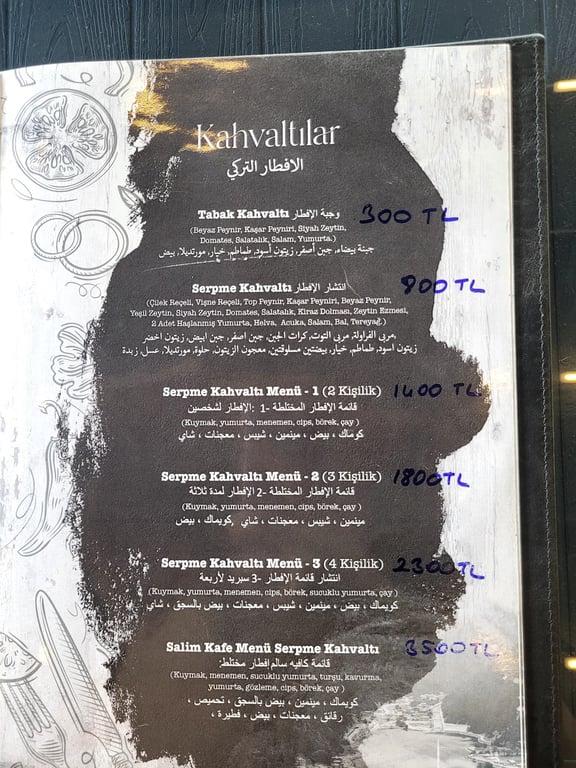 Kahvaltılar
الافطار التركي
Tabak Kahvaltı وجبة الإفطار 300 TL
(Beyaz Peynir, Kaşar Peyniri, Siyah Zeytin,
Domates, Salatalık, Salam, Yumurta.)
جبنة بيضاء, جبن اصفر, زيتون أسود, طماطم, خيار, مورتديلا, بيض
Serpme Kahvaltı انتشار الإفطار 800 TL
(Çilek Reçeli, Vişne Reçeli, Top Peynir, Kaşar Peyniri, Beyaz Peynir,
Yeşil Zeytin, Siyah Zeytin, Domates, Salatalık, Kiraz Dolması, Zeytin Ezmesi,
2 Adet Haşlanmış Yumurta, Helva, Acuka, Salam, Bal, Tereyağ.)
مربى الفراولة, مربى التوت, كرات الجبن, جبن اصفر, جبن ابيض, زيتون اخضر,
زيتون أسود, طماطم, خيار, بيضتين مسلوقتين, معجون الزيتون, حلوة, مورتديلا, عسل, زبدة
Serpme Kahvaltı Menü - 1 (2 Kişilik) 1400 TL
قائمة الإفطار المختلطة -1: الإفطار لشخصين
(Kuymak, yumurta, menemen, cips, börek, çay )
كويماك ، بيض ، مينمين ، شيبس ، معجنات ، شاي
Serpme Kahvaltı Menü - 2 (3 Kişilik) 1800TL
قائمة الإفطار المختلطة -2 الإفطار لمدة ثلاثة
(Kuymak, yumurta, menemen, cips, börek, çay )
مينمين ، شيبس ، معجنات ، شاي ,كويماك ، بيض
Serpme Kahvaltı Menü - 3 (4 Kişilik) 2300TL
انتشار قائمة الإفطار -3 سبريد لأربعة
(Kuymak, yumurta, menemen, cips, börek, sucuklu yumurta, çay )
كويماك ، بيض ، مينمين ، شيبس ، معجنات ، بيض بالسجق ، شاي
Salim Kafe Menü Serpme Kahvaltı 3500TL
قائمة كافيه سالم إفطار مختلط:
(Kuymak, menemen, sucuklu yumurta, turşu, kavurma,
yumurta, gözleme, cips, börek, çay )
كويماك ، مينمين ، بيض بالسجق ، تحميص ،
رقائق ، معجنات ، بيض ، فطيرة ،